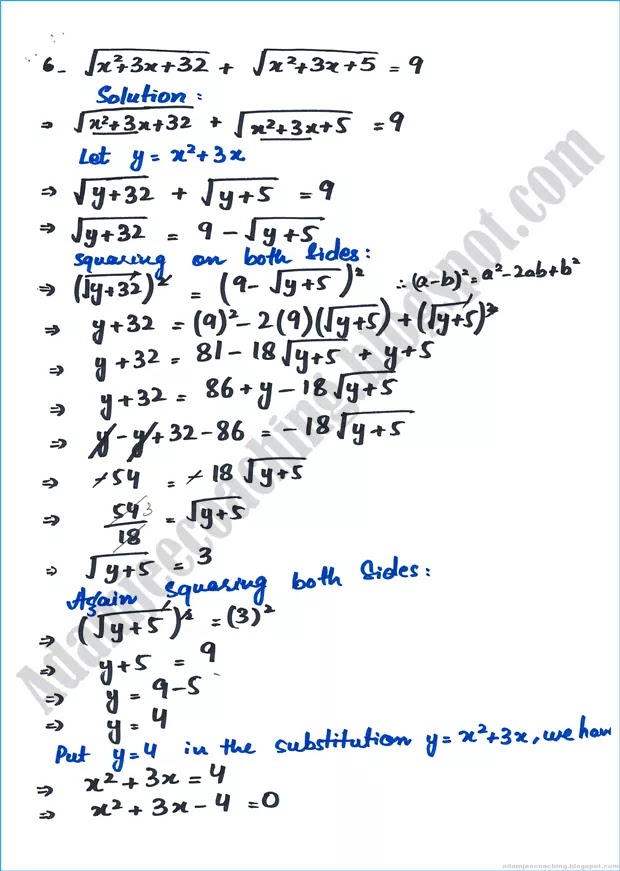 6- √(x²+3x+32) + √(x²+3x+5) = 9
Solution:
⇒ √(x²+3x+32) + √(x²+3x+5) = 9
Let y = x²+3x
⇒ √(y+32) + √(y+5) = 9
⇒ √(y+32) = 9 - √(y+5)
squaring on both sides:
⇒ (√(y+32))² = (9-√(y+5))² ∴ (a-b)² = a²-2ab+b²
⇒ y+32 = (9)²-2(9)(√(y+5))+(√(y+5))²
⇒ y+32 = 81-18√(y+5) + y+5
⇒ y+32 = 86+y-18√(y+5)
⇒ y-y+32-86 = -18√(y+5)
⇒ -54 = -18√(y+5)
⇒ 54/18 3 = √(y+5)
⇒ √(y+5) = 3
Again squaring both sides:
⇒ (√(y+5))² = (3)²
⇒ y+5 = 9
⇒ y = 9-5
⇒ y = 4
Put y=4 in the substitution y=x²+3x, we have
⇒ x²+3x=4
⇒ x²+3x-4=0
Adamjeecoaching.blogspot.com
adamjeecoaching.blogspot.com